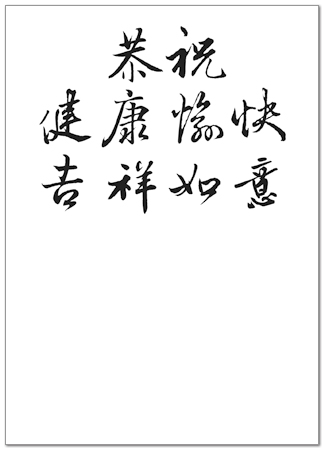 恭祝
健康愉快
吉祥如意